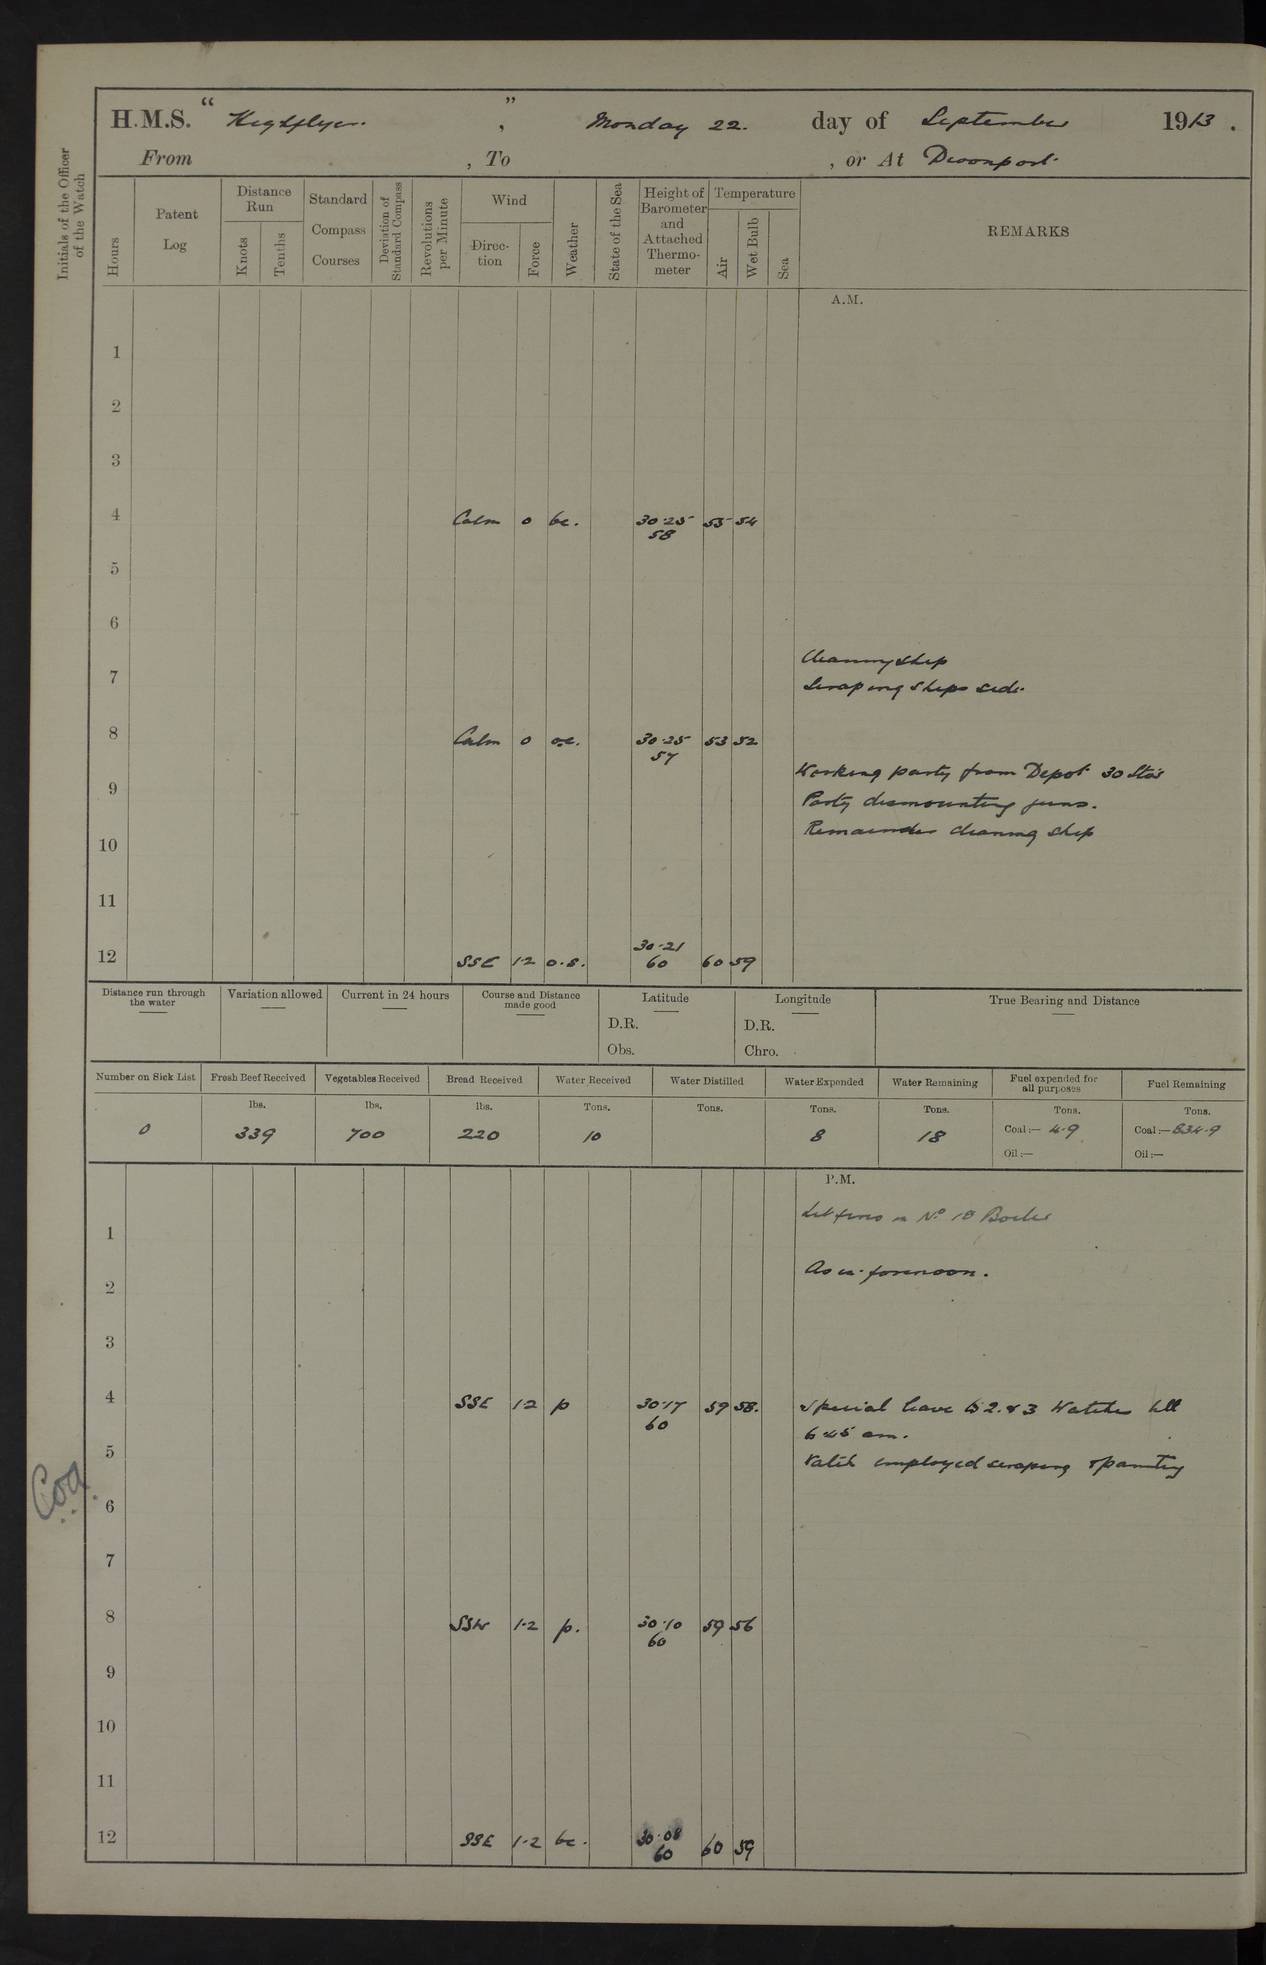 H.M.S. " Highflyer. ", Monday 22. day of September 1913.
From , To , or At Devonport
Initials of the Officer of the Watch
Hours
Patent Log
Distance Run
Knots
Tenths
Standard Compass Courses
Deviation of Standard Compass
Revolutions per Minute
Wind
Direc-tion
Force
Weather
State of the Sea
Height of Barometer and Attached Thermo-meter
Temperature
Air
Wet Bulb
Sea
REMARKS
A.M.
1
2
3
4 Calm 0 bc. 30.25 55 54
58
5
6
Cleaning ship
7
Scraping ships side.
8 Calm 0 oc. 30.25 53 52
57
Working party from Depot 30 Sto's
9
Party dismounting guns.
Remainder cleaning ship
10
11
30.21
12 SSE 1.2 o.s. 60 60 59
Distance run through the water
Variation allowed
Current in 24 hours
Course and Distance made good
Latitude
D.R.
Obs.
Longitude
D.R.
Chro.
True Bearing and Distance
Number on Sick List Fresh Beef Received Vegetables Received Bread Received Water Received Water Distilled Water Expended Water Remaining Fuel expended for all purposes Fuel Remaining
lbs. lbs. lbs. Tons. Tons. Tons. Tons. Tons. Tons.
0 339 700 220 10 8 18 Coal:— 4.9 Coal:— 834.9
Oil:— Oil:—
P.M.
fires in No 18 Boiler
1
As in forenoon.
2
3
4 SSE 1.2 p 30.17 59 58. Special leave to 2. & 3 Watches till
60 6.45 am.
5
Watch employed scraping & painting
Coa
6
7
8 SSW 1.2 p. 30.10 59 56
60
9
10
11
12 SSE 1.2 bc. 30.08 60 59
60